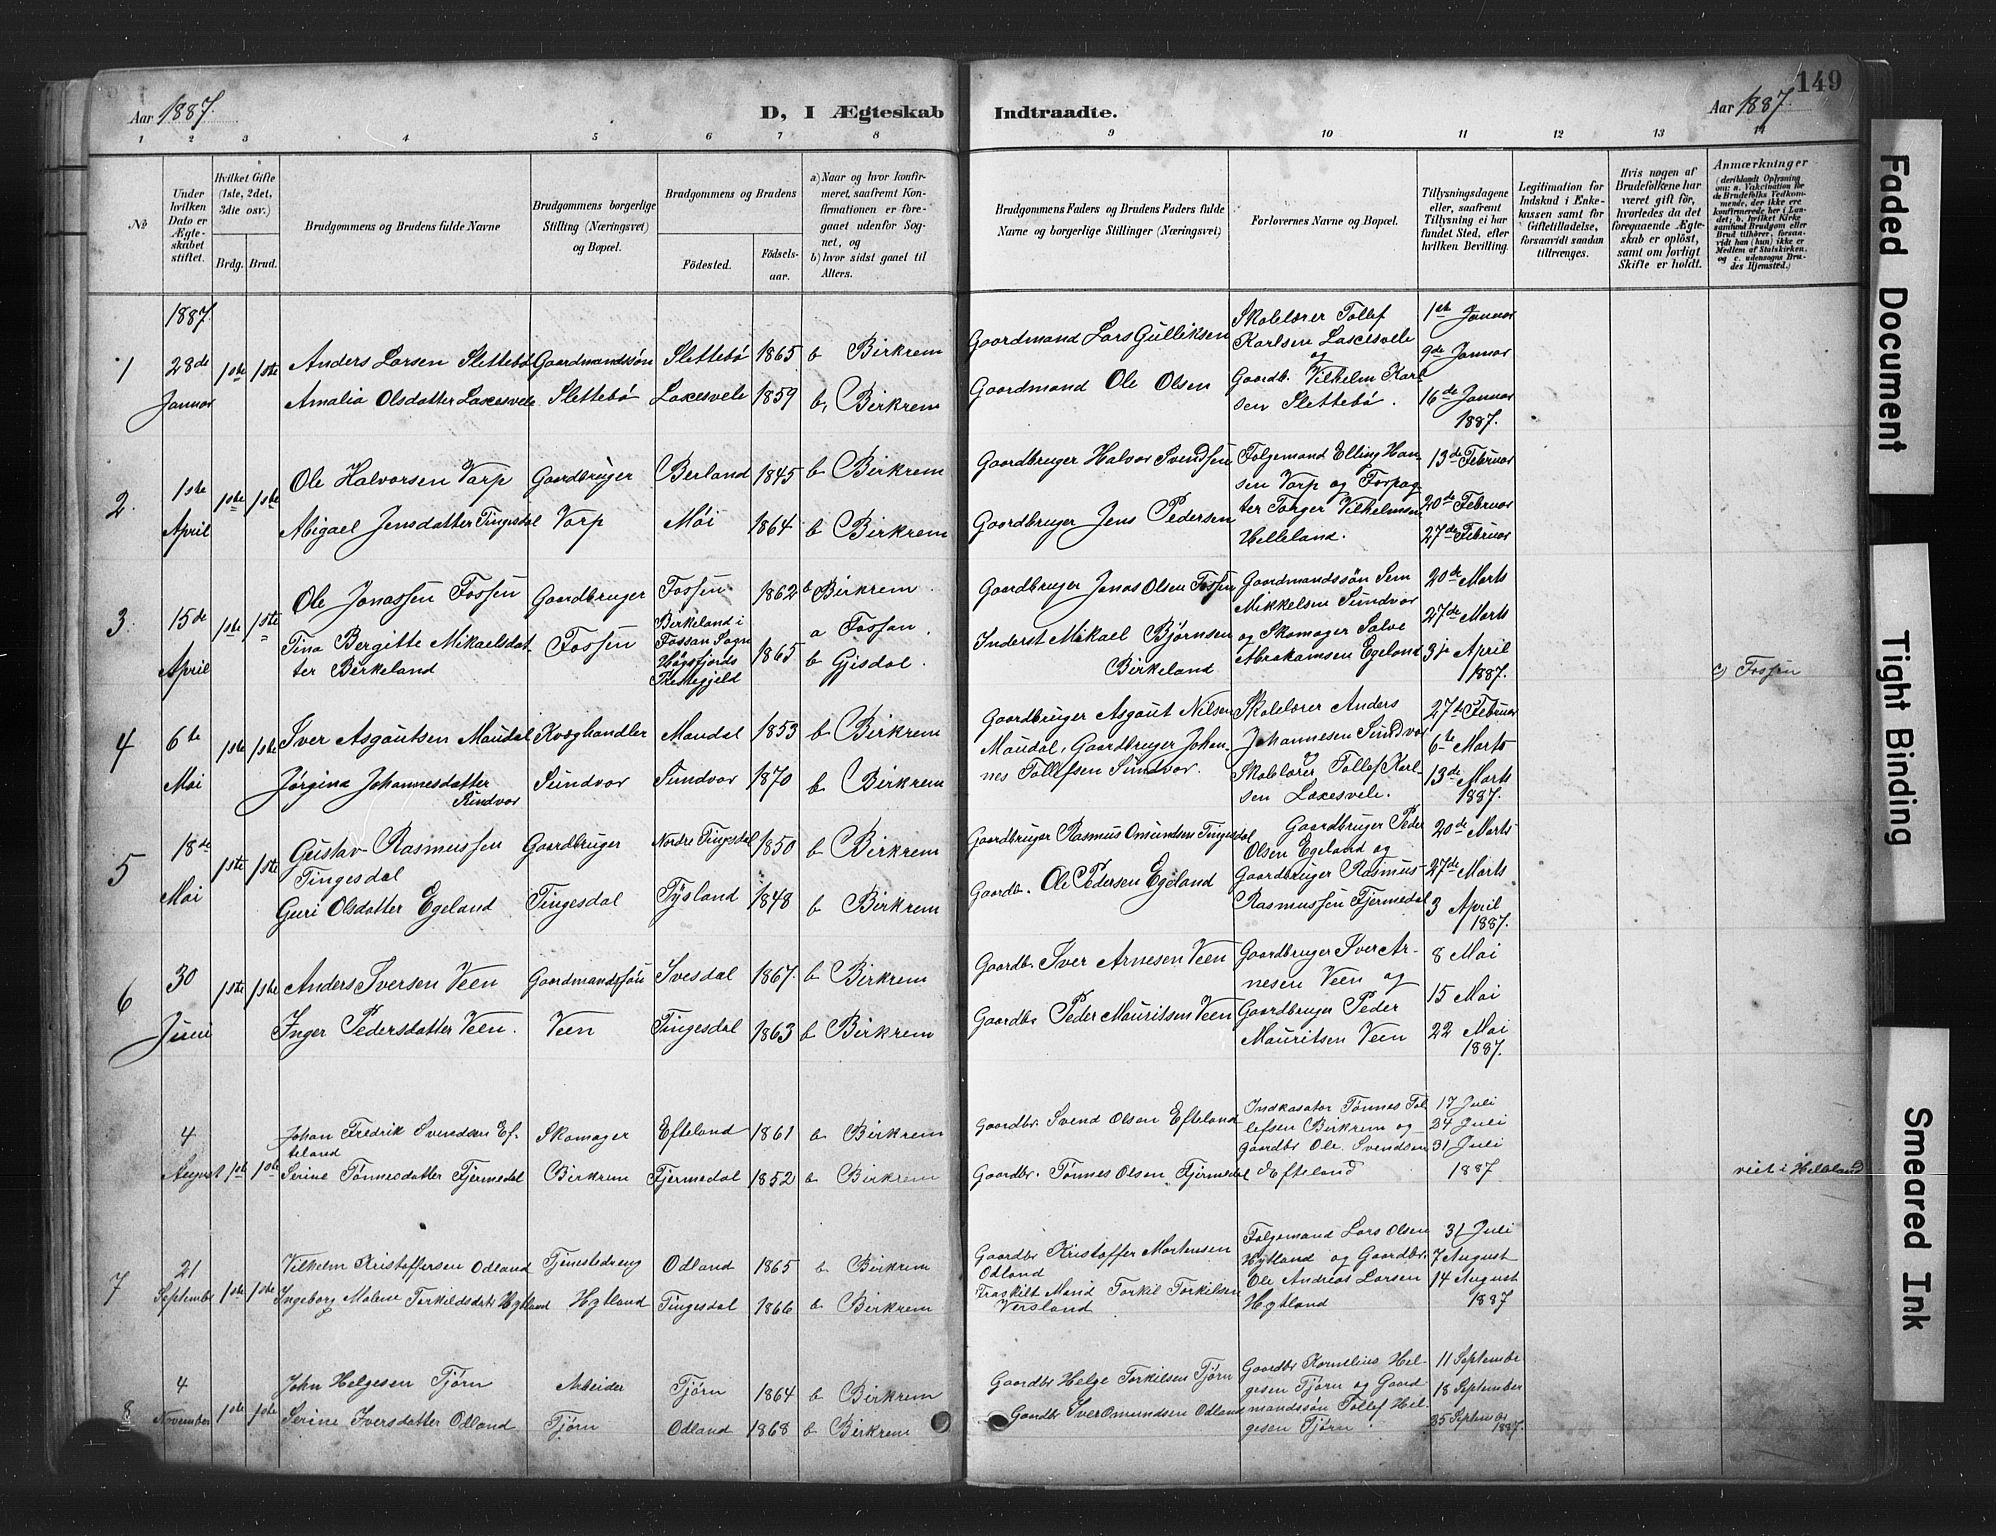 149
Aar 1887.
D, I Ægteskab Indtraadte.
Aar 1887.
1 2 3 4 5 6 7 8 9 10 11 12 13 14
No
Under hvilken Dato er Ægteskabet stiftet.
Hvilket Gifte (1ste, 2det, 3die osv.)
Brdg. Brud.
Brudgommens og Brudens fulde Navne
Brudgommens borgerlige Stilling (Næringsvei) og Bopæl.
Brudgommens og Brudens
Fødested.
Fødselsaar.
a) Naar og hvor konfirmeret, saafremt Konfirmationen er foregaaet udenfor Sognet, og
b) hvor sidst gaaet til Alters.
Brudgommens Faders og Brudens Faders fulde Navne og borgerlige Stillinger (Næringsvei)
Forlovernes Navne og Bopæl.
Tillysningsdagene eller, saafremt Tillysning ei har fundet Sted, efter hvilken Bevilling.
Legitimation for Indskud i Enkekassen samt for Giftetilladelse, forsaavidt saadan tiltrænges.
Hvis nogen af Brudefolkene har været gift før, hvorledes da det foregaaende Ægteskab er opløst, samt om lovligt Skifte er holdt.
Anmærkninger
(deriblandt Oplysning om: a. Vakcination for de Brudefolks Vedkommende, der ikke ere konfirmerede her i Landet; b. hvilket Kirkesamfund Brudgom eller Brud tilhører, forsaavidt han (hun) ikke er Medlem af Statskirken, og c. udensogns Brudes Hjemsted.)
1887.
1 28de Januar 1ste 1ste
Anders Larsen Slettebø Gaardmandssøn Slettebø 1865 b Birkrem
Amalia Olsdatter Laxesvele Slettebø Laxesvele 1859 b, Birkrem
Gaardmand Lars Gulliksen
Gaardmand Ole Olsen
Skolelærer Tollef
Karlsen Laxesvele
og
Gaardb. Vilhelm Karl
sen Slettebø.
1ste Januar
9de Januar
16de Januar
1887.
2. 1ste April 1ste 1ste
Ole Halvorsen Varp Gaardbruger Berland 1845 b Birkrem
Abigael Jensdatter Tingesdal Varp Møi 1864 b Birkrem
Gaardbruger Halvor Svendsen
Gaardbruger Jens Pedersen
Følgemand Elling Han-
sen Varp og Forpag-
ter Torger Vilhelmsen
Helleland.
13de Februar
20de Februar
27de Februar
3. 15de April 1ste 1ste
Ole Jonassen Fossen Gaardbruger Fossen 1862 b Birkrem
Tina Bergitte Mikaelsdat-
ter Birkeland Fossen
Birkeland i
Fossan Sogn
Høgsfjords
Præstegjeld 1865
a Fossan.
b Gjesdal.
Gaardbruger Jonas Olsen Fossen
Inderst Mikael Bjørnsen
Birkeland
Gaardmandssøn Sem
Mikkelsen Sundvor
og Skomager Salve
Abrahamsen Egeland
20de Marts
27de Marts
3die April
1887.
c) Fossan
4 6te Mai 1ste 1ste
Iver Asgautsen Maudal Kvæghandler Maudal 1853 b Birkrem
Jørgina Johannesdatter
Sundvor Sundvor Sundvor 1870 b Birkrem
Gaardbruger Asgaut Nilsen
Maudal, Gaardbruger Johan-
nes Tollefsen Sundvor.
Skolelærer Anders
Johannesen Sundvor
og
Skolelærer Tollef Karl-
sen Laxesvele.
27de Februar
6te Marts
13de Marts
1887.
5 18de Mai 1ste 1ste
Gustav Rasmussen
Tingesdal Gaardbruger Nordre Tingesdal 1850 b Birkrem
Guri Olsdatter Egeland Tingesdal Tysland 1848 b Birkrem
Gaardbruger Rasmus Omundsen Tingesdal
Gaardbr. Ole Pedersen Egeland
Gaardbruger Peder
Olsen Egeland og
Gaardbruger Rasmus
Rasmussen Fjermedal
20de Marts
27de Marts
3 April
1887.
6 30 Juni 1ste 1ste
Anders Iversen Veen Gaardmandssøn Ivesdal 1867. b Birkrem
Inger Pedersdatter Veen. Veen Tingesdal 1863 b Birkrem
Gaardb. Iver Arnesen Veen
Gaardbr Peder Mauritsen Veen
Gaardbruger Iver Ar-
nesen Veen og
Gaardbruger Peder
Mauritsen Veen
8 Mai
15 Mai
22 Mai
1887.
4 August 1ste 1ste
Johan Fredrik Svendsen Ef-
teland Skomager Efteland 1861 b Birkrem
Serine Tønnesdatter Fjermedal Birkrem Fjermedal 1852 b Birkrem
Gaardbr. Svend Olsen Efteland
Gaardbr. Tønnes Olsen Fjermedal
Indkasator Tønnes Tol
lefsen Birkrem og
gaardbr Ole Svendsen
Efteland
17 Juli
24 Juli
31 Juli
1887
viet i Helleland
7 21 September 1ste 1ste
Vilhelm Kristoffersen Odland Tjenstedreng Odland 1865 b Birkrem
Ingeborg Malene Torkildsdatt Hytland Hytland Tingesdal 1866 b Birkrem
Gaardbr Kristoffer Mortensen
Odland
Fraskilt Mand Torkil Torkilsen
Versland
Følgemand Lars Olsen
Hytland og Gaardbr.
Ole Andreas Larsen
Hytland
31 Juli
7 August
14 August
1887
8 4 November 1ste 1ste
John Helgesen Tjørn Arbeider Tjørn 1864 b Birkrem
Serine Iversdatter Odland Tjørn Odland 1868 b Birkrem
Gaardbr Helge Torkilsen Tjørn
Gaardbr Iver Omundsen Odland
Gaardbr Kornelius Hel-
gesen Tjørn og Gaard
mandssøn Tollef Hel-
gesen Tjørn.
11 September
18 September
25 September
1887.
Faded Document
Tight Binding
Smeared Ink